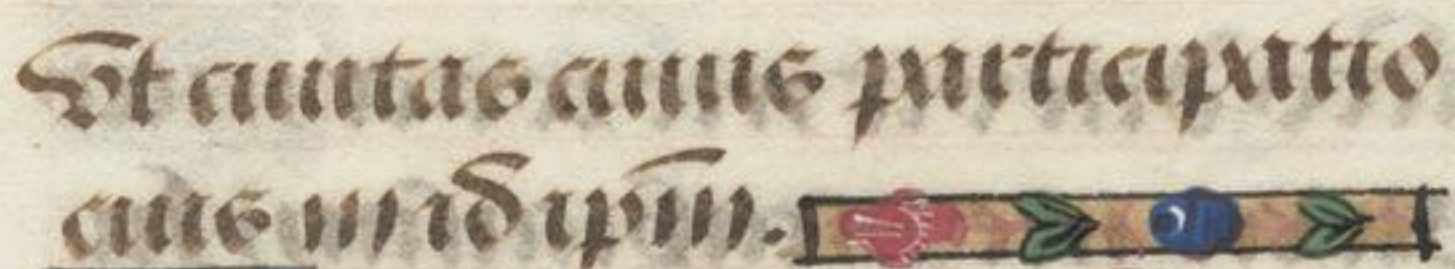 Vt ciuitas cuius participatio
eius in id ip̄m.